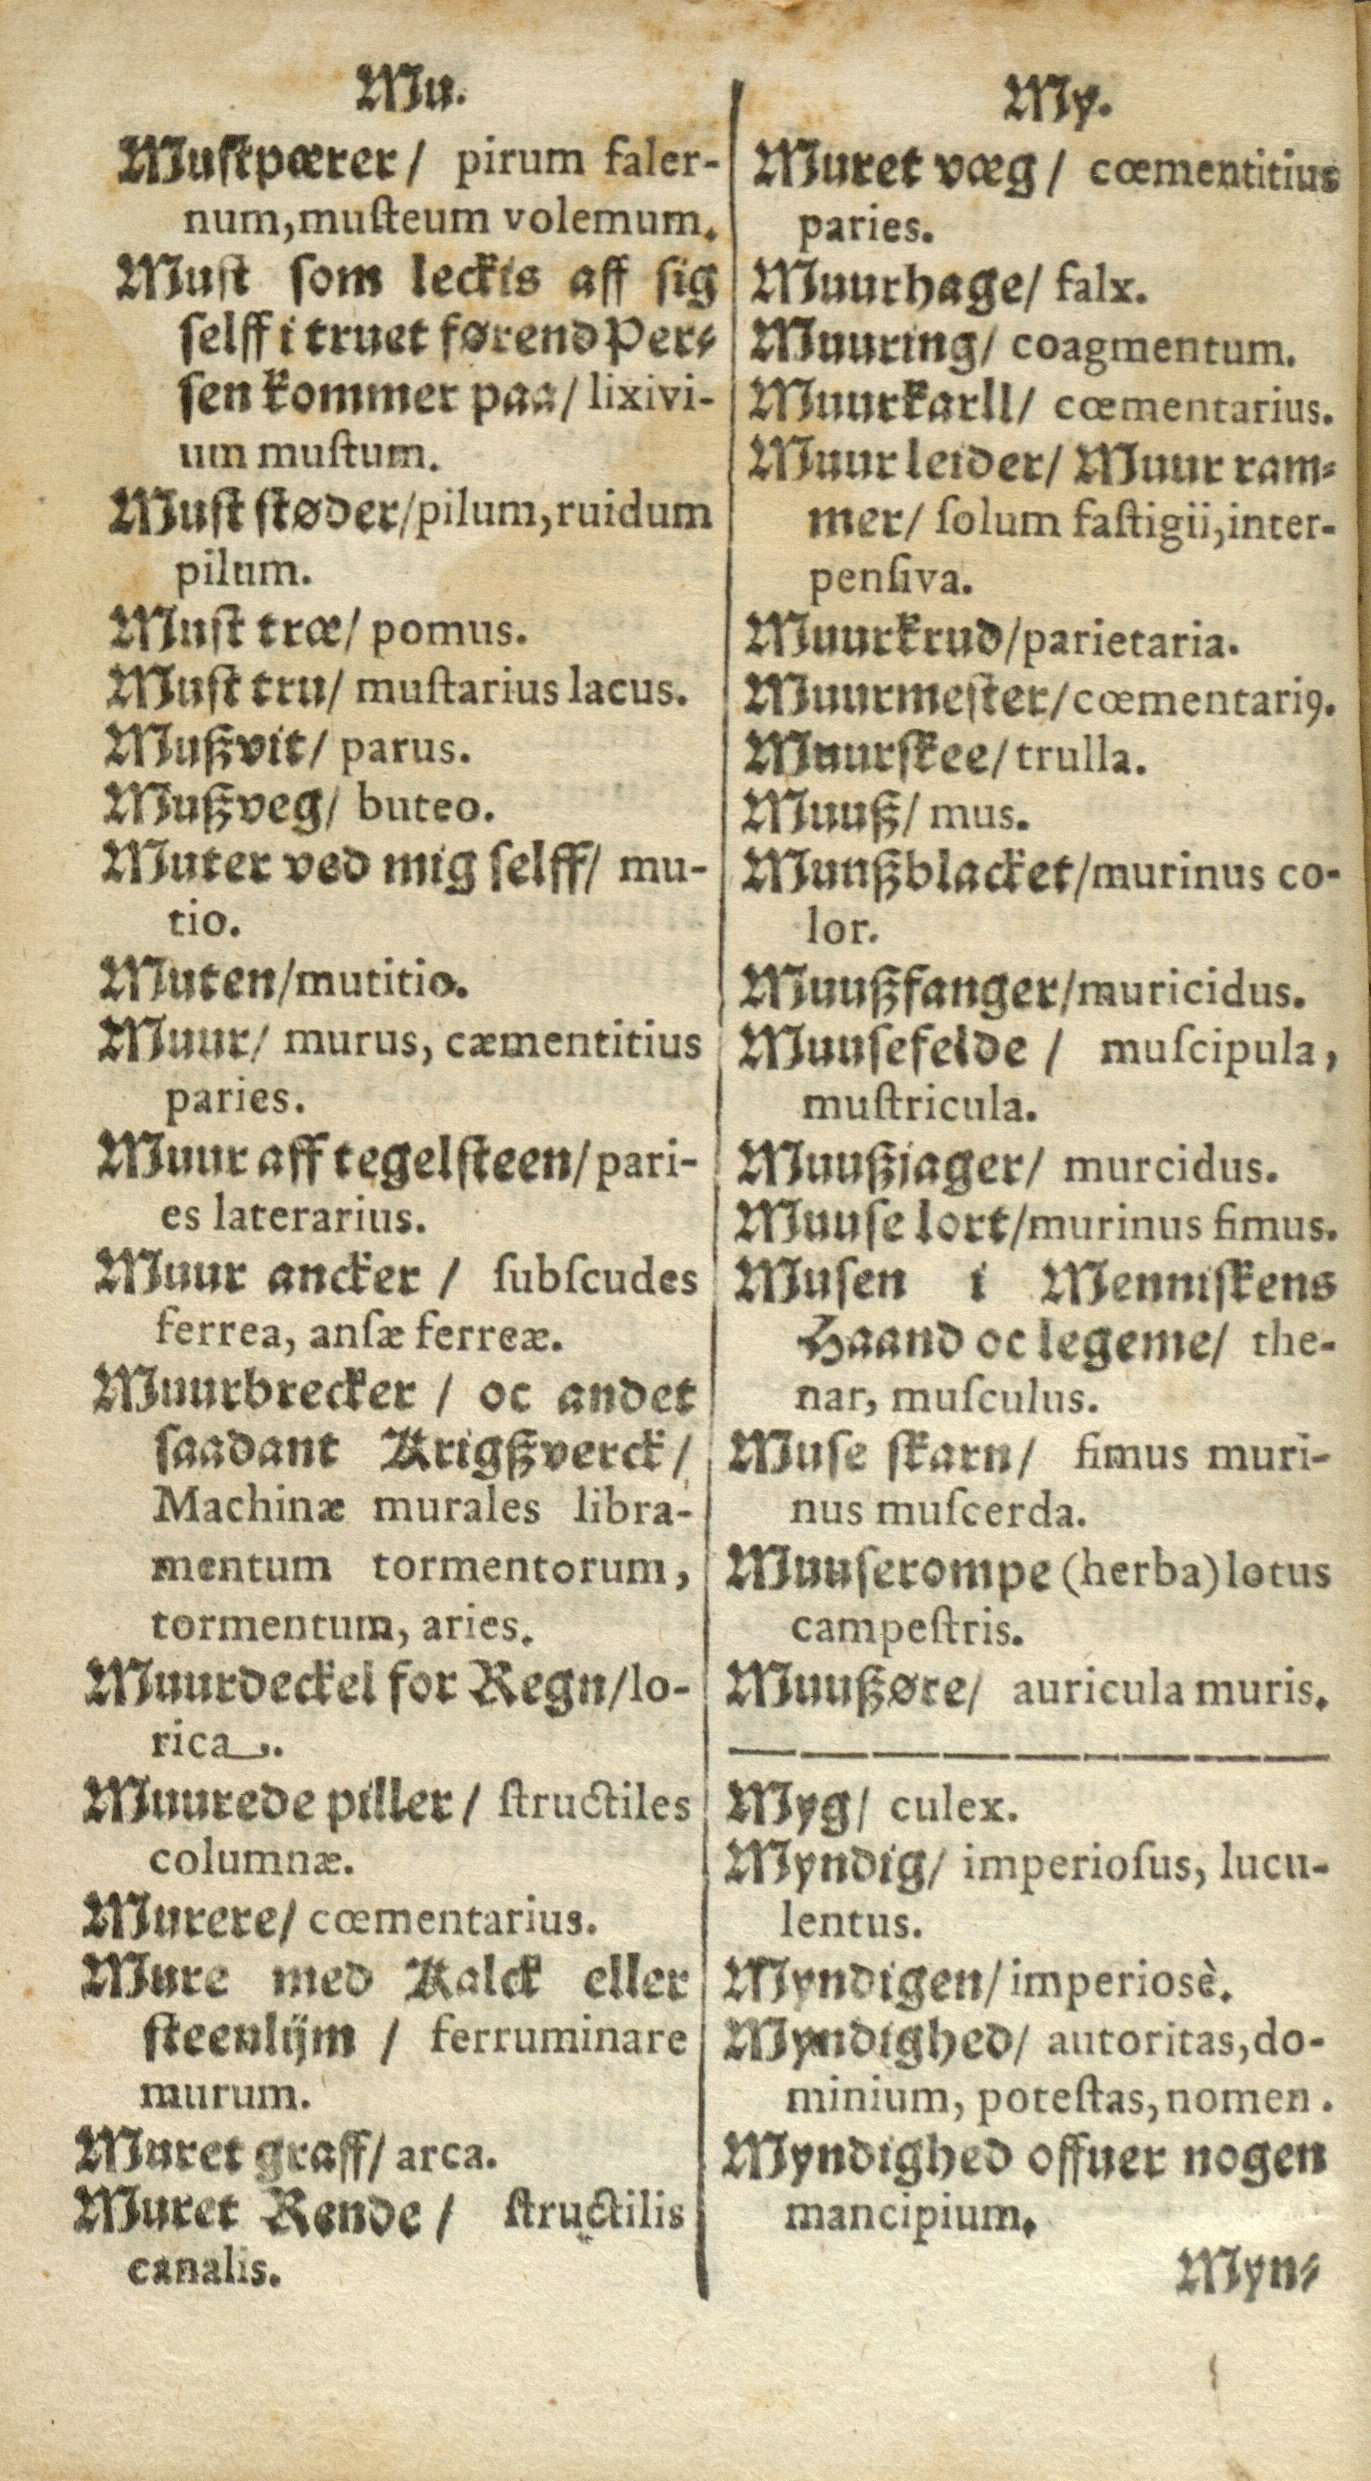 Mu.
Mustpærer / pirum faler-
num, muſteum volemum.
Must ſom leckis aff ſig
ſelff i truet førend Per-
ſen kommer paa / lixivi-
um muſtum.
Must ſtøder / pilum, ruidum
pilum.
Must træ / pomus.
Must tru / muſtarius lacus.
Mußvit / parus.
Mußveg / buteo.
Muter ved mig ſelff / mu-
tio.
Muten / mutitio.
Muur / murus, cæmentitius
paries.
Muur aff tegelſteen / pari-
es laterarius.
Muur ancker / ſubſcudes
ferrea, anſæ ferreæ.
Muurbrecker / oc andet
ſaadant Krigßverck /
Machinæ murales libra-
mentum tormentorum,
tormentum, aries.
Muurdeckel for Regn / lo-
rica.
Muurede piller / ſtructiles
columnæ.
Murere / cœmentarius.
Mure med Kalck eller
ſteenlijm / ferruminare
murum.
Muret graff / arca.
Muret Rende / ſtructilis
canalis.
My.
Muret væg / cœmentitius
paries.
Muurhage / falx.
Muuring / coagmentum.
Muurkarll / cœmentarius.
Muur leider / Muur ram-
mer / ſolum faſtigii, inter-
penſiva.
Muurkrud / parietaria.
Muurmeſter / cœmentariꝰ.
Muurſkee / trulla.
Muuß / mus.
Muußblacket / murinus co-
lor.
Muußfanger / muricidus.
Muuſefelde / muſcipula,
muſtricula.
Muußjager / murcidus.
Muuſe lort / murinus fimus.
Muſen i Menniſkens
Haand oc legeme / the-
nar, muſculus.
Muſe ſkarn / fimus muri-
nus muſcerda.
Muuſerompe (herba) lotus
campeſtris.
Muußøre / auricula muris.
Myg / culex.
Myndig / imperioſus, lucu-
lentus.
Myndigen / imperiosè.
Myndighed / autoritas, do-
minium, poteſtas, nomen.
Myndighed offuer nogen
mancipium.
Myn-